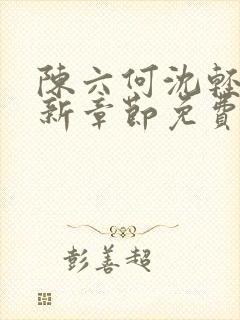 陳六何沈輕
新章節免費
彭善超